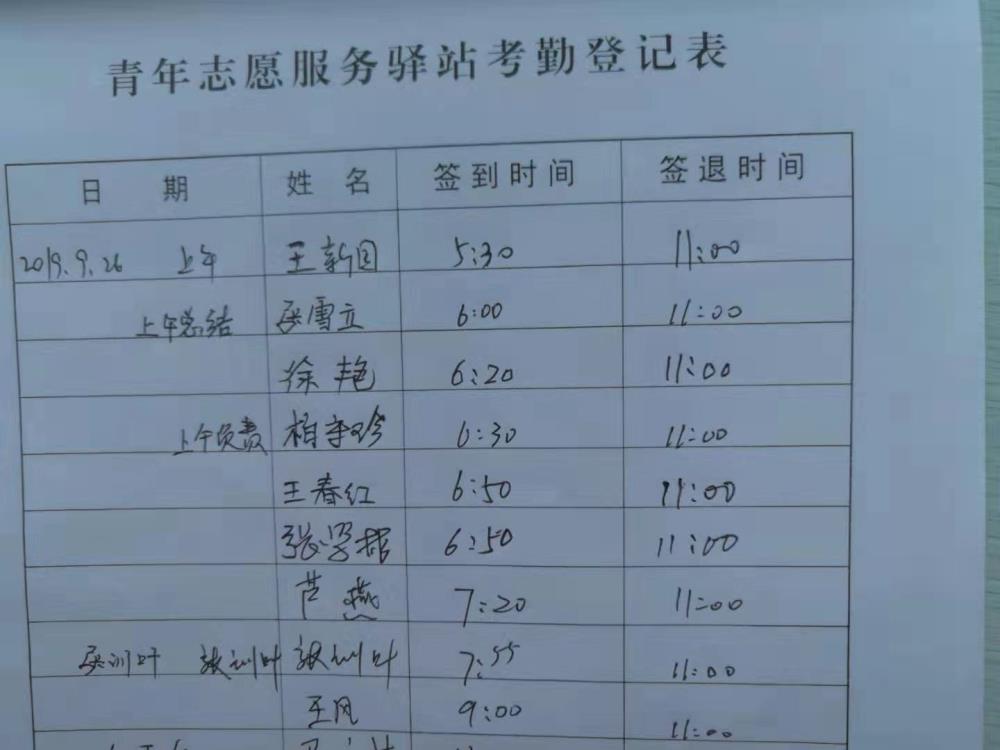 青年志愿服务驿站考勤登记表
日 期 姓 名 签到时间 签退时间
2019.9.26 上午 王新国 5:30 11:00
上午总结 雪立 6:00 11:00
徐艳 6:20 11:00
上午负责 柏 6:30 11:00
王春红 6:50 11:00
张 6:50 11:00
芦燕 7:20 11:00
训叶 训叶 训叶 7:55 11:00
王凤 9:00 11:00